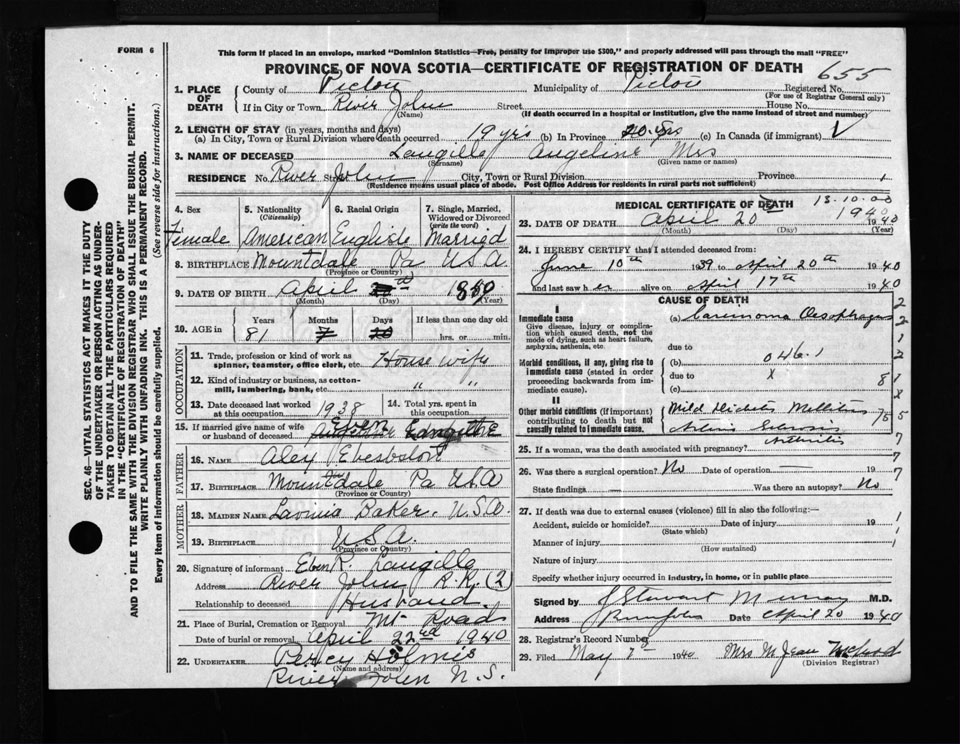 FORM 6
This form if placed in an envelope, marked "Dominion Statistics—Free, penalty for improper use $300," and properly addressed will pass through the mail "FREE"
PROVINCE OF NOVA SCOTIA—CERTIFICATE OF REGISTRATION OF DEATH
655
1. PLACE OF DEATH
County of Pictou Municipality of Pictou Registered No.
(For use of Registrar General only)
If in City or Town River John Street House No.
(Name) (If death occurred in a hospital or institution, give the name instead of street and number)
2. LENGTH OF STAY (in years, months and days)
(a) In City, Town or Rural Division where death occurred 19 yrs (b) In Province 20 yrs (c) In Canada (if immigrant)
3. NAME OF DECEASED Langille Angeline Mrs
(Surname) (Given name or names)
RESIDENCE No. River John Street City, Town or Rural Division Province
(Residence means usual place of abode. Post Office Address for residents in rural parts not sufficient)
4. Sex
Female
5. Nationality
(Citizenship)
American
6. Racial Origin
English
7. Single, Married, Widowed or Divorced
(write the word)
Married
8. BIRTHPLACE Mountdale Pa USA
(Province or Country)
9. DATE OF BIRTH April
(Month) (Day) (Year)
10. AGE in
Years Months Days If less than one day old
81 hrs. or min.
OCCUPATION
11. Trade, profession or kind of work as spinner, teamster, office clerk, etc. House wife
12. Kind of industry or business, as cotton-mill, lumbering, bank, etc. " "
13. Date deceased last worked at this occupation 1938
14. Total yrs. spent in this occupation
15. If married give name of wife or husband of deceased
FATHER
16. Name Aley
17. Birthplace Mountdale Pa USA
(Province or Country)
MOTHER
18. Maiden Name Lavinia Baker. U.S.A.
19. Birthplace USA
(Province or Country)
20. Signature of informant Eben R. Langille
Address River John R.R. (2)
Relationship to deceased Husband.
21. Place of Burial, Cremation or Removal Mt Road
Date of burial or removal April 22nd 1940
22. UNDERTAKER Percy Holmes
(Name and address)
River John N.S.
MEDICAL CERTIFICATE OF DEATH
13-10-00
23. DATE OF DEATH April 20th 1940
(Month) (Day) (Year)
24. I HEREBY CERTIFY that I attended deceased from:
June 10th 1939 to April 20th 1940
and last saw her alive on April 17th 1940
CAUSE OF DEATH
I
Immediate cause
Give disease, injury or complication which caused death, not the mode of dying, such as heart failure, asphyxia, asthenia, etc.
(a) Carcinoma Oesophagus
due to
Morbid conditions, if any, giving rise to immediate cause (stated in order proceeding backwards from immediate cause).
(b) 046.1
due to x
(c)
II
Other morbid conditions (if important) contributing to death but not causally related to immediate cause.
Mild Diabetes Mellitus
Arterio Sclerosis
Arthritis
25. If a woman, was the death associated with pregnancy?
26. Was there a surgical operation? No Date of operation — 19
State findings — Was there an autopsy? No
27. If death was due to external causes (violence) fill in also the following:—
Accident, suicide or homicide? Date of injury 19
(State which)
Manner of injury
(How sustained)
Nature of injury
Specify whether injury occurred in industry, in home, or in public place
Signed by J Stewart Murray M.D.
Address River John Date April 20 1940
28. Registrar's Record Number
29. Filed May 7 1940 Mrs M Jean
(Division Registrar)
SEC. 46—VITAL STATISTICS ACT MAKES IT THE DUTY OF THE UNDERTAKER OR PERSON ACTING AS UNDERTAKER TO OBTAIN ALL THE PARTICULARS REQUIRED IN THE "CERTIFICATE OF REGISTRATION OF DEATH" AND TO FILE THE SAME WITH THE DIVISION REGISTRAR WHO SHALL ISSUE THE BURIAL PERMIT.
WRITE PLAINLY WITH UNFADING INK. THIS IS A PERMANENT RECORD.
Every item of information should be carefully supplied. (See reverse side for instructions.)